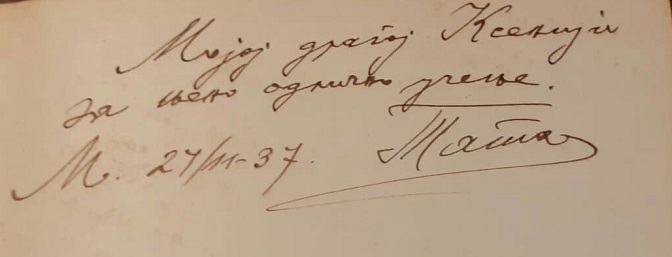 Мојој драгој Ксенији
за њено одлично учење.
М. 27/II-37. Тата